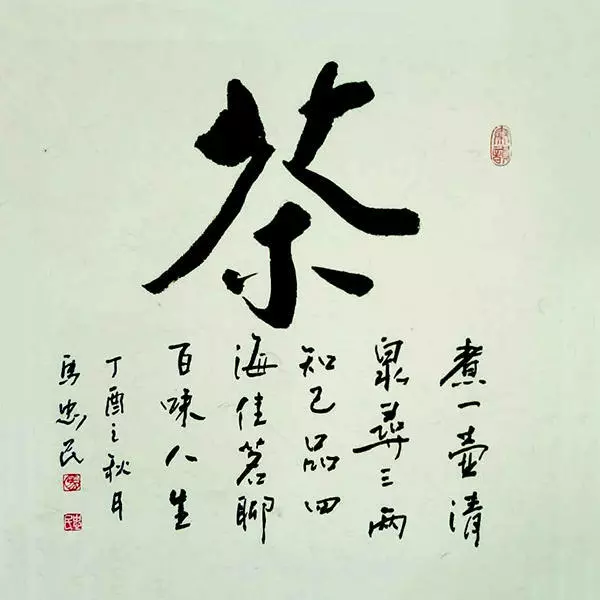 茶
煮一壶清
泉寻三两
知己品四
海佳茗聊
百味人生
丁酉之秋月
马忠民